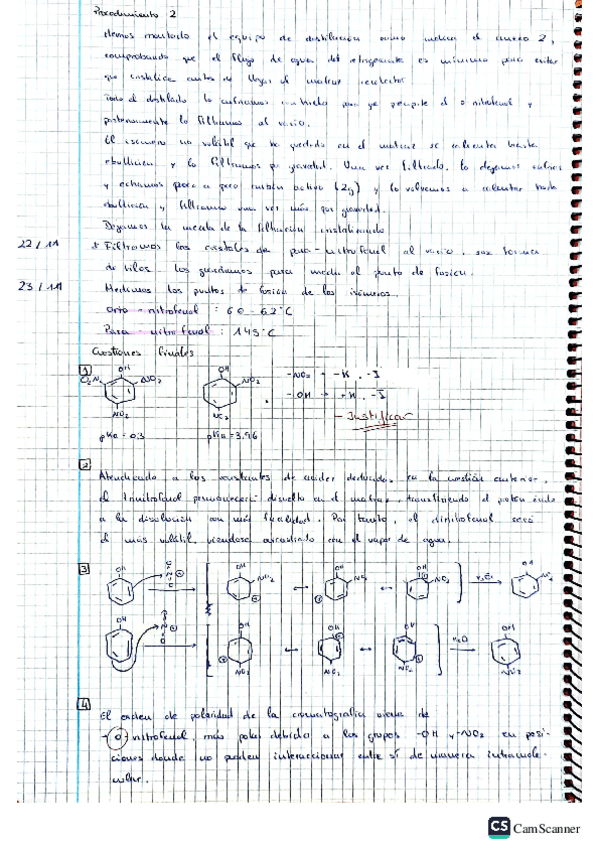 Procedimiento 2
Hemos montado el equipo de destilación como indica el anexo 2,
comprobando que el flujo de agua del refrigerante es mínimo para evitar
que cristalice antes de llegar al matraz colector
Todo el destilado lo enfriamos con hielo para que precipite el o-nitrofenol y
posteriormente lo filtramos al vacío.
El isómero no volátil que ha quedado en el matraz se calienta hasta
ebullición y lo filtramos por gravedad. Una vez filtrado, lo dejamos enfriar
y echamos poco a poco carbón activo (2g) y lo volvemos a calentar hasta
ebullición y filtramos una vez más por gravedad.
Dejamos la mezcla de la filtración cristalizando
22/11 * Filtramos los cristales de para-nitrofenol al vacío, sus forma
de hilos. Los guardamos para medir el punto de fusión.
23/11 Medimos los puntos de fusión de los isómeros.
Orto-nitrofenol: 60-62°C
Para-nitrofenol: 145°C
Cuestiones finales
1
OH
O₂N
NO₂
NO₂
pKa = 0,3
OH
NO₂
NO₂
pKa = 3,96
-NO₂ → -K, -I
-OH → -K, -I
- Justificar
2
Atendiendo a las constantes de acidez deducidas, en la cuestión anterior,
el trinitrofenol permanecerá disuelto en el matraz, transfiriendo el protón
a la disolución con más facilidad. Por tanto, el dinitrofenol será
el más volátil, viéndose arrastrado con el vapor de agua.
3
OH
OH
NO₂
OH
OH
NO₂
OH
OH
NO₂
OH
NO₂
OH
NO₂
H₂O
OH
NO₂
4
El orden de polaridad de la cromatografía viene de
o nitrofenol, más polar debido a los grupos -OH y -NO₂ en posi-
ciones donde no pueden interaccionar entre sí de manera intramole-
cular.
CS CamScanner